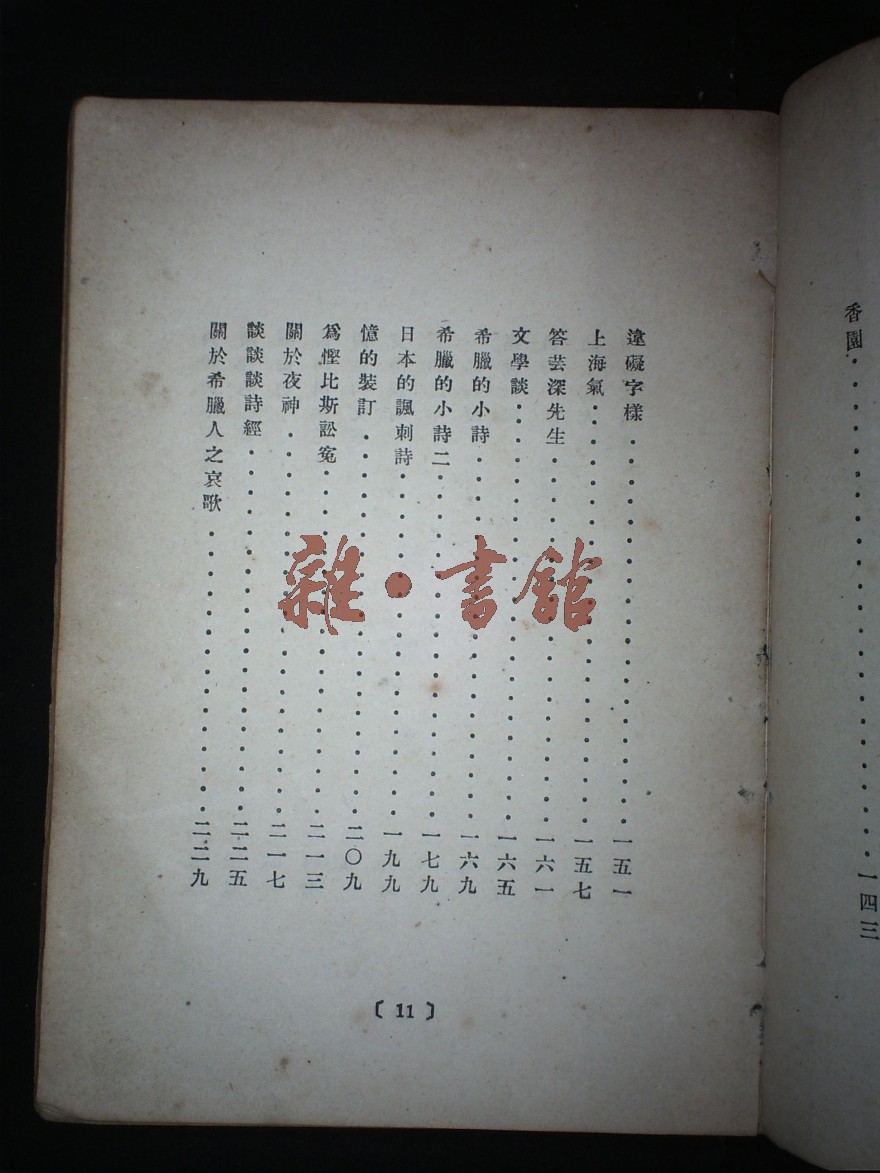 香園・・・・・・・・・・・・・・・・・・・・一四三
違礙字樣・・・・・・・・・・・・・・・・・・一五一
上海氣・・・・・・・・・・・・・・・・・・・一五七
答芸深先生・・・・・・・・・・・・・・・・・一六一
文學談・・・・・・・・・・・・・・・・・・・一六五
希臘的小詩・・・・・・・・・・・・・・・・・一六九
希臘的小詩二・・・・・・・・・・・・・・・・一七九
日本的諷刺詩・・・・・・・・・・・・・・・・一九九
憶的裝訂・・・・・・・・・・・・・・・・・・二〇九
爲慳比斯訟寃・・・・・・・・・・・・・・・・二一三
關於夜神・・・・・・・・・・・・・・・・・・二一七
談談談詩經・・・・・・・・・・・・・・・・・二二五
關於希臘人之哀歌・・・・・・・・・・・・・・二二九
〔11〕
雜・書館